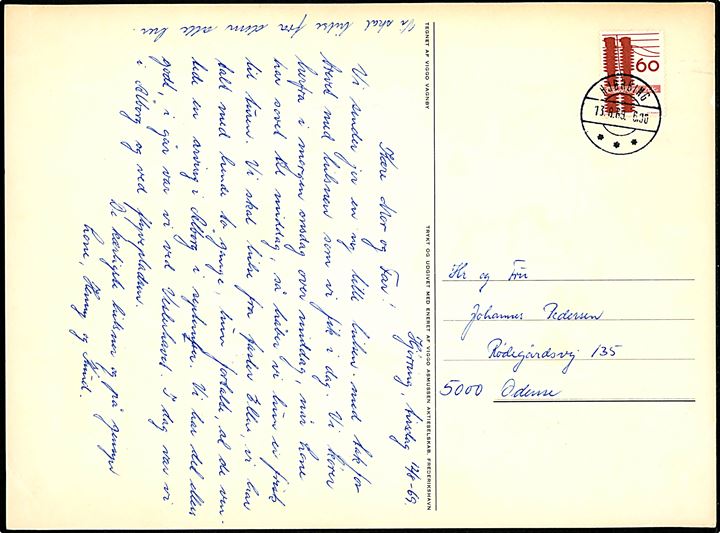 Hjørring, tirsdag 12/8-69.
Kære Mor og Far!
Vi sender jer en ny lille hilsen med tak for
brevet med hilsnen som vi fik i dag. Vi kører
herfra i morgen onsdag over middag, når Lone
har sovet til middag, så håber vi hun er frisk
til turen. Vi skal hilse fra faster Ellen, vi har
talt med hende to gange, hun fortalte at de ven-
tede en arving i Ålborg i september. Vi har det alle
godt, i går var vi ved Vesterhavet. I dag var vi
i Ålborg og ved flyvepladsen.
De kærligste hilsner og på gensyn
Lone, Henny og Svend.
Vi skal hilse fra dem alle her.
TEGNET AF VIGGO VAGNBY
TRYKT OG UDGIVET MED ENERET AF VIGGO ASMUSSEN AKTIESELSKAB, FREDERIKSHAVN
60
HJØRRING
13.8.69. 6.30
Hr og Fru
Johannes Pedersen
Rødegårdsvej 135
5000 Odense